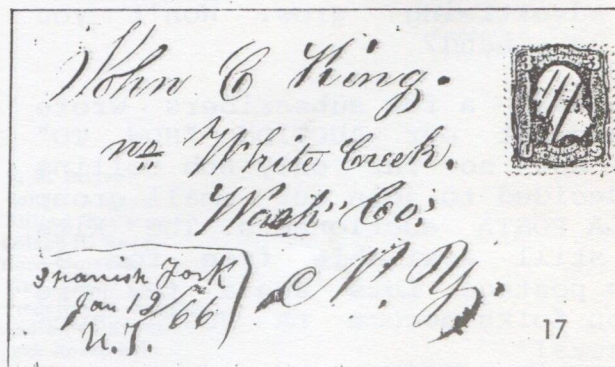 John C King.
no White Creek.
Wash" Co;
N. Y.
Spanish Fork
Jan 12/66
U. T.
17